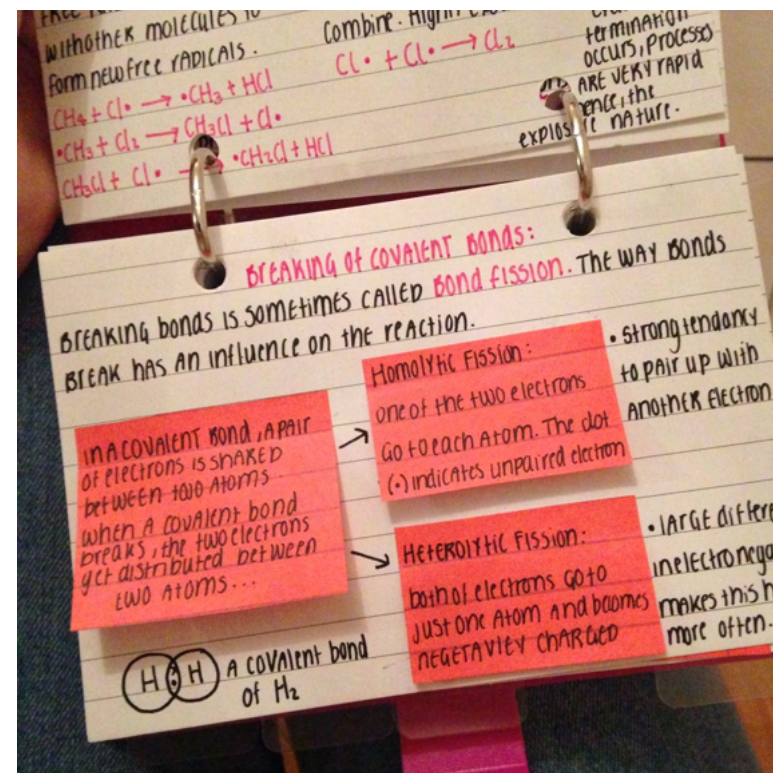 with other molecules to
form new free radicals.
CH₄ + Cl• → •CH₃ + HCl
•CH₃ + Cl₂ → CH₃Cl + Cl•
CH₃Cl + Cl• → •CH₂Cl + HCl
Combine.
Cl• + Cl• → Cl₂
termination
occurs, processes
ARE VERY RAPID
the
explosive nature.
BREAKING of COVALENT BONDS:
BREAKING bonds is sometimes called Bond fission. The way Bonds
BREAK has an influence on the reaction.
In a covalent Bond, a pair
of electrons is shared
between two atoms.
when a covalent bond
breaks, the two electrons
get distributed between
two atoms...
Homolytic Fission:
one of the two electrons
Go to each Atom. The dot
(•) indicates unpaired electron
• strong tendancy
to pair up with
another electron
Heterolytic Fission:
both of electrons go to
just one Atom and becomes
negetavley charged
• large
in
makes this
more often.
H : H A covalent bond
of H₂